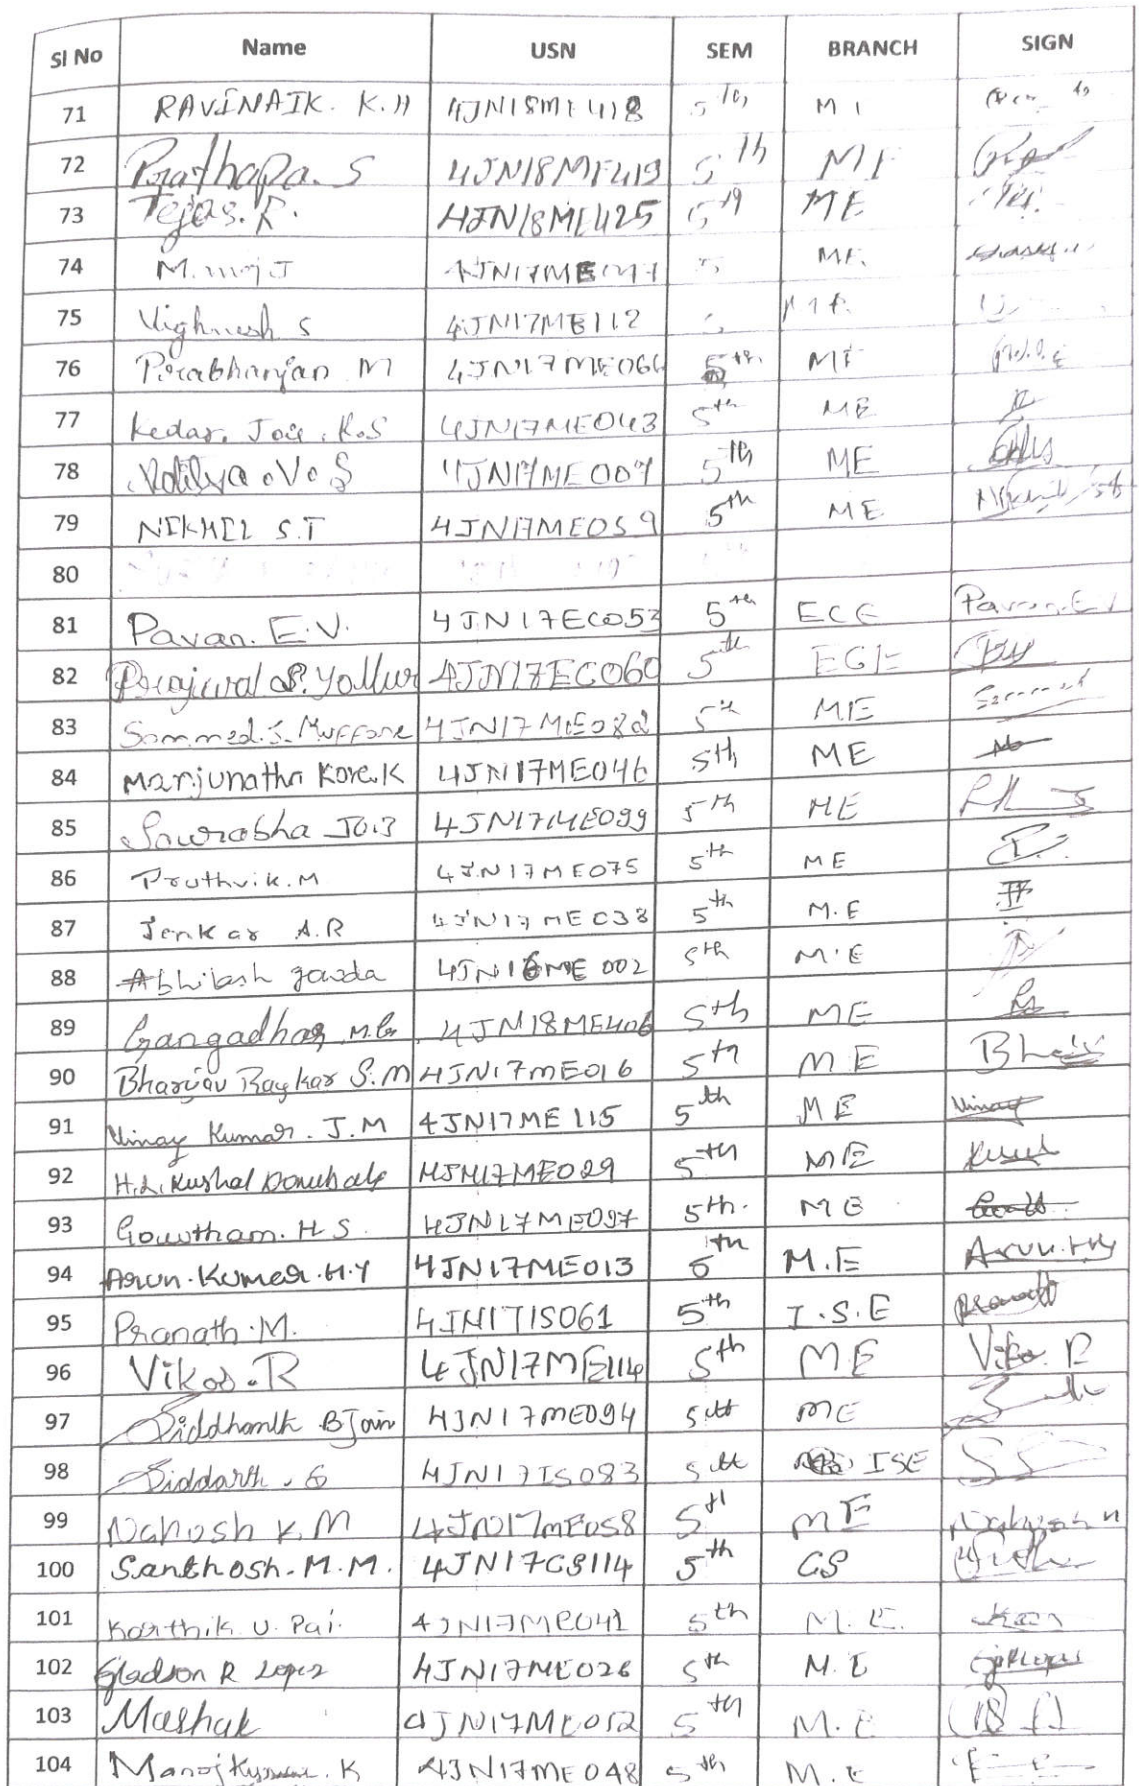 Sl No Name USN SEM BRANCH SIGN
71 RAVINAIK. K.H 4JN18ME418 5th M
72 Prathapa. S 4JN18ME419 5th ME
73 Tejas. R. 4JN18ME425 5th ME
74 J ME
75 Vighnesh S 4JN17ME112
76 Prabhanjan M 4JN17ME066 5th ME
77 Kedar. Jois. K.S 4JN17ME043 5th ME
78 Aditya . V . S 4JN17ME007 5th ME
79 NIKHIL S.T 4JN17ME059 5th ME
80
81 Pavan. E.V. 4JN17EC053 5th ECE Pavan.E.V
82 Prajwal S. Yallur 4JN17EC060 5th ECE
83 Sammed. S. Muffane 4JN17ME082 5th ME
84 Manjunatha Kore.K 4JN17ME046 5th ME
85 Sourabha JOIS 4JN17ME099 5th ME
86 Pruthvik.M 4JN17ME075 5th ME
87 Jenkar A.R 4JN17ME038 5th M.E
88 Abhilash gowda 4JN16ME002 5th M.E
89 Gangadhar 4JN18ME406 5th ME
90 Bhargav Raykar S.M 4JN17ME016 5th ME
91 Vinay Kumar. J.M 4JN17ME115 5th ME Vinay
92 Kushal 4JN17ME029 5th ME
93 Gowtham. H S. 5th. ME
94 Arun.Kumar.H.Y 4JN17ME013 5th M.E Arun.HY
95 Pranath.M. 4JN17IS061 5th I.S.E
96 Vikas.R 4JN17ME114 5th ME
97 Siddhanth B Jain 4JN17ME094 5th ME
98 Siddarth . G 4JN17IS083 5th ISE
99 Nahush K M 4JN17ME058 5th ME
100 Santhosh.M.M. 4JN17CS114 5th CS
101 Karthik U. Pai. 4JN17ME041 5th M.E.
102 Gladson R Lopez 4JN17ME026 5th M.E
103 Mashak 4JN17ME052 5th M.E
104 Manoj Kumar.K 4JN17ME048 5th M.E